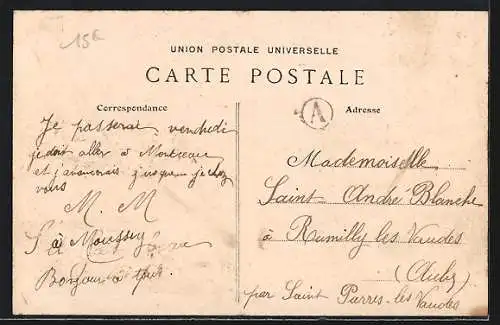 15€
UNION POSTALE UNIVERSELLE
CARTE POSTALE
Correspondance
Adresse
A
Je passerai vendredi
je doit aller à Montceau
et j'avancerais jusque je chez
vous
M. M
à Moussey
Bonjour à tous.
Mademoiselle
Saint André Blanche
à Rumilly les Vaudes
(Aube)
par Saint Parres-les Vaudes